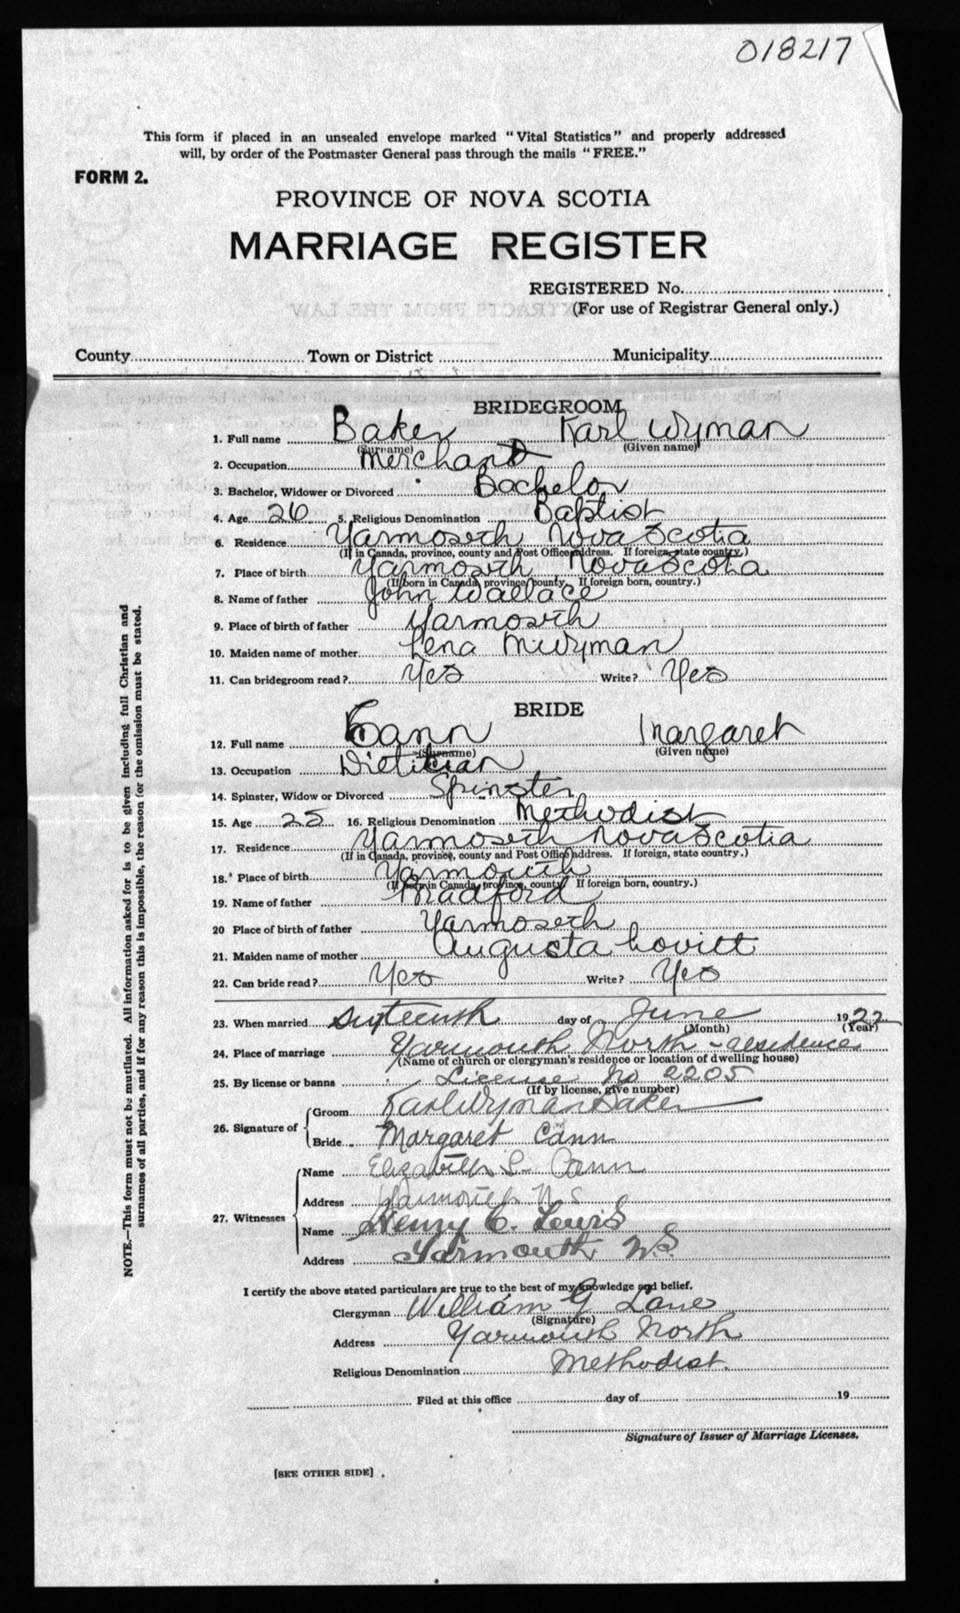 018217
This form if placed in an unsealed envelope marked "Vital Statistics" and properly addressed
will, by order of the Postmaster General pass through the mails "FREE."
FORM 2.
PROVINCE OF NOVA SCOTIA
MARRIAGE REGISTER
REGISTERED No.
(For use of Registrar General only.)
County Town or District Municipality
BRIDEGROOM
1. Full name Baker Karl Wyman
(Surname) (Given name)
2. Occupation Merchant
3. Bachelor, Widower or Divorced Bachelor
4. Age 26 5. Religious Denomination Baptist
6. Residence Yarmouth Nova Scotia
(If in Canada, province, county and Post Office address. If foreign, state country.)
7. Place of birth Yarmouth Nova Scotia
(If born in Canada, province, county. If foreign born, country.)
8. Name of father John Wallace
9. Place of birth of father Yarmouth
10. Maiden name of mother Lena M Wyman
11. Can bridegroom read? Yes Write? Yes
BRIDE
12. Full name Cann Margaret
(Surname) (Given name)
13. Occupation Dietitian
14. Spinster, Widow or Divorced Spinster
15. Age 25 16. Religious Denomination Methodist
17. Residence Yarmouth Nova Scotia
(If in Canada, province, county and Post Office address. If foreign, state country.)
18. Place of birth Yarmouth
(If born in Canada, province, county. If foreign born, country.)
19. Name of father Bradford
20 Place of birth of father Yarmouth
21. Maiden name of mother Augusta Lovitt
22. Can bride read? Yes Write? Yes
23. When married Sixteenth day of June 1922
(Month) (Year)
24. Place of marriage Yarmouth North - residence
(Name of church or clergyman's residence or location of dwelling house)
25. By license or banns License No 2205
(If by license, give number)
26. Signature of Groom Karl Wyman Baker
Bride Margaret Cann
27. Witnesses Name Elizabeth S. Cann
Address Yarmouth N S
Name Henry C. Lewis
Address Yarmouth N.S.
I certify the above stated particulars are true to the best of my knowledge and belief.
Clergyman William G Lane
(Signature)
Address Yarmouth North
Religious Denomination Methodist.
Filed at this office day of 19
Signature of Issuer of Marriage Licenses.
[SEE OTHER SIDE]
NOTE.—This form must not be mutilated. All information asked for is to be given including full Christian and
surnames of all parties, and if for any reason this is impossible, the reason for the omission must be stated.